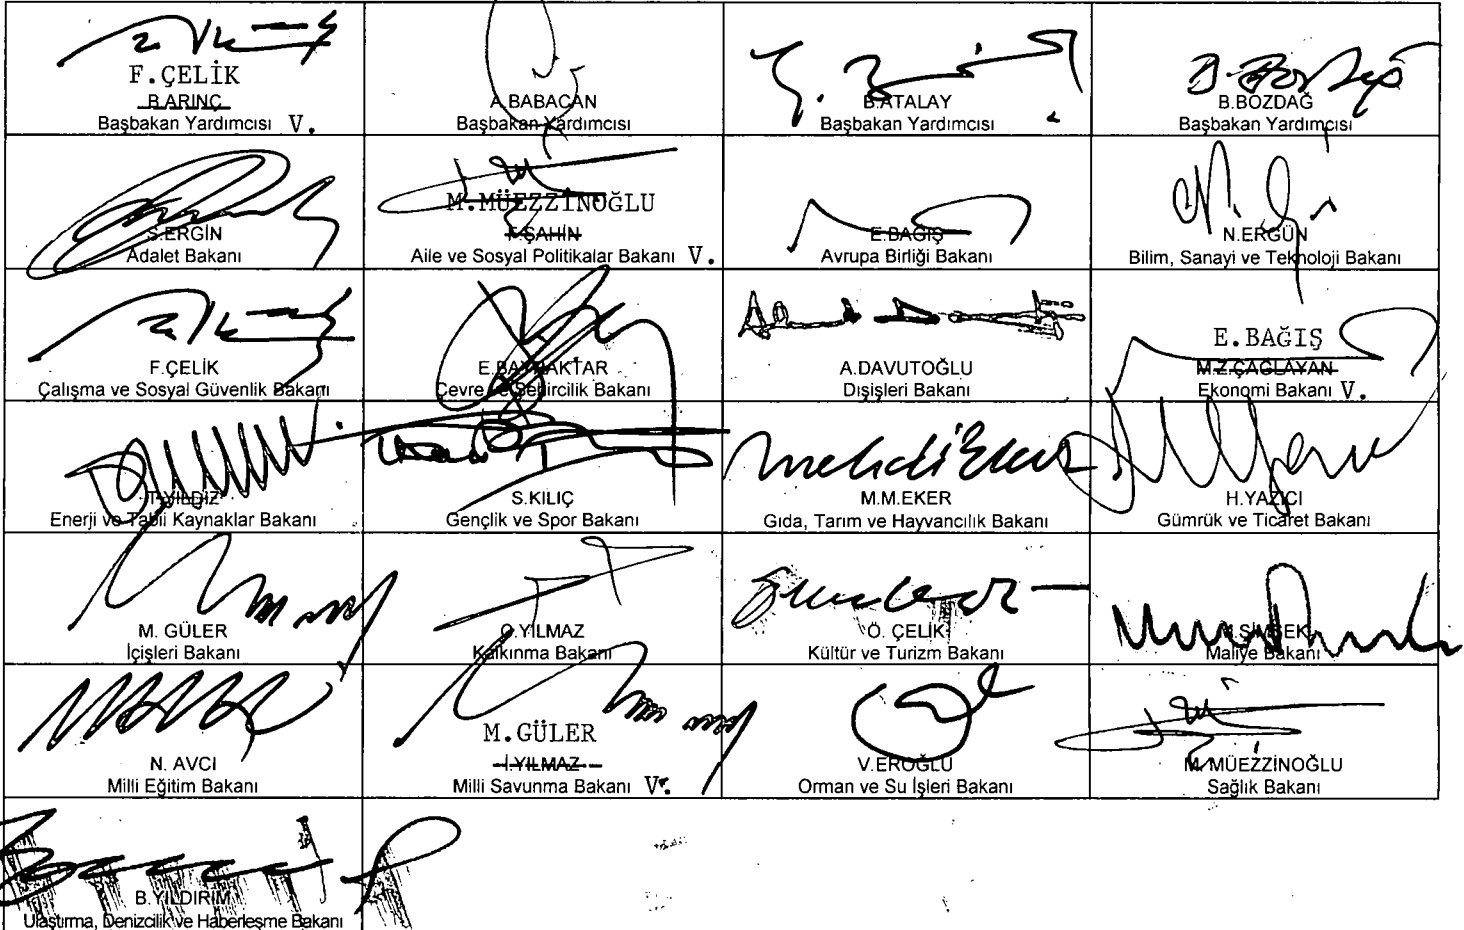 F.ÇELİK
B.ARINÇ
Başbakan Yardımcısı V.
A.BABACAN
Başbakan Yardımcısı
B.ATALAY
Başbakan Yardımcısı
B.BOZDAĞ
Başbakan Yardımcısı
S.ERGİN
Adalet Bakanı
M.MÜEZZİNOĞLU
F.ŞAHİN
Aile ve Sosyal Politikalar Bakanı V.
E.BAĞIŞ
Avrupa Birliği Bakanı
N.ERGÜN
Bilim, Sanayi ve Teknoloji Bakanı
F.ÇELİK
Çalışma ve Sosyal Güvenlik Bakanı
E.BAYRAKTAR
Çevre ve Şehircilik Bakanı
A.DAVUTOĞLU
Dışişleri Bakanı
E.BAĞIŞ
M.Z.ÇAĞLAYAN
Ekonomi Bakanı V.
T.YILDIZ
Enerji ve Tabii Kaynaklar Bakanı
S.KILIÇ
Gençlik ve Spor Bakanı
M.M.EKER
Gıda, Tarım ve Hayvancılık Bakanı
H.YAZICI
Gümrük ve Ticaret Bakanı
M. GÜLER
İçişleri Bakanı
C.YILMAZ
Kalkınma Bakanı
Ö. ÇELİK
Kültür ve Turizm Bakanı
M.ŞİMŞEK
Maliye Bakanı
N. AVCI
Milli Eğitim Bakanı
M.GÜLER
İ.YILMAZ
Milli Savunma Bakanı V.
V.EROĞLU
Orman ve Su İşleri Bakanı
M. MÜEZZİNOĞLU
Sağlık Bakanı
B.YILDIRIM
Ulaştırma, Denizcilik ve Haberleşme Bakanı